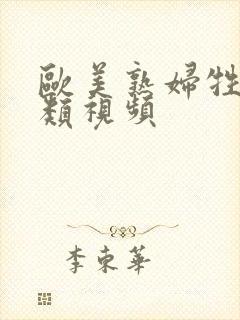 歐美熟婦牲
類視頻
李束華